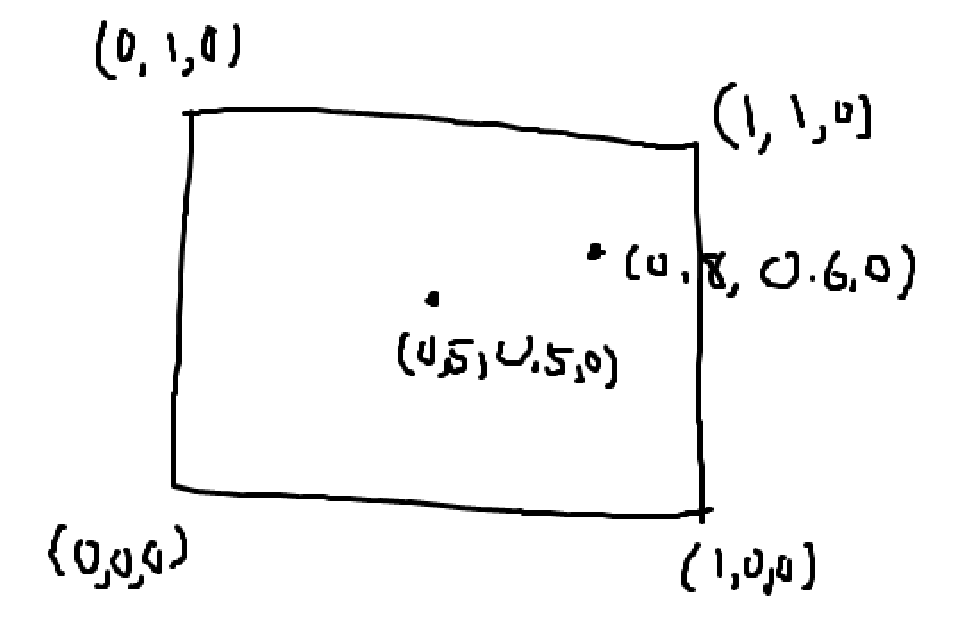 (0, 1, 0)
(1, 1, 0]
(0.8, 0.6, 0)
(0.5, 0.5, 0)
(0,0,0)
(1,0,0]